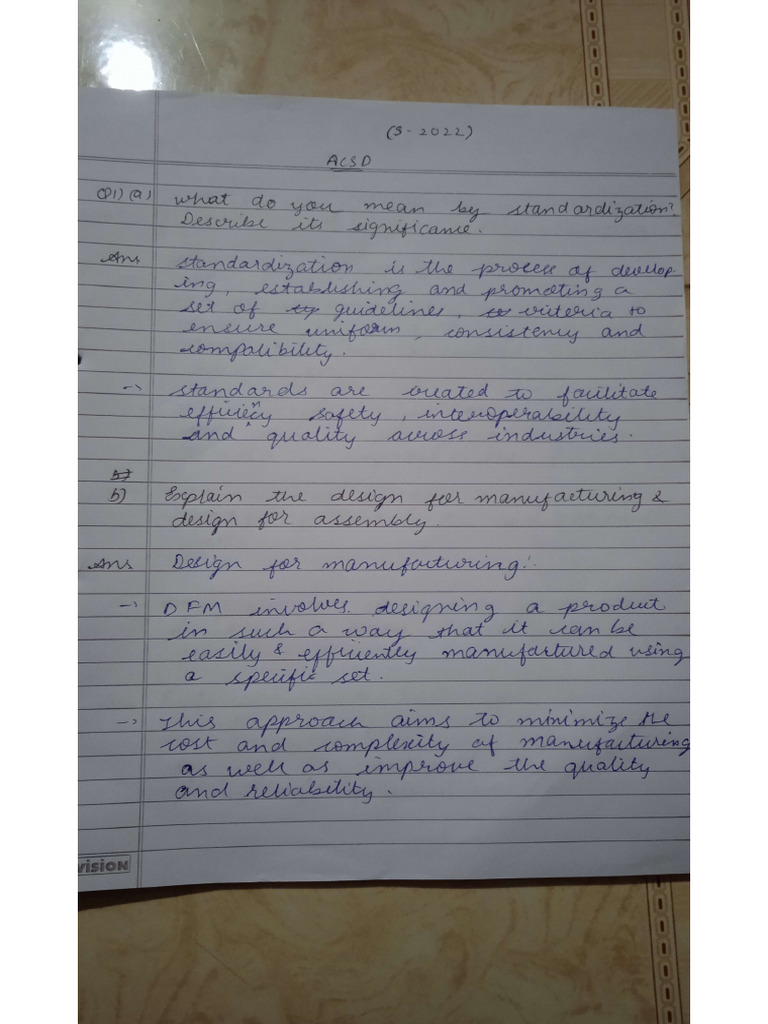 (S-2022)
ACSD
Q1) (a) what do you mean by standardization?
Describe its significance.
Ans standardization is the process of develop-
ing, establishing and promoting a
set of guidelines, criteria to
ensure uniform, consistency and
compatibility.
-> standards are created to facilitate
efficiency safety, interoperability
and quality across industries.
b)
b) Explain the design for manufacturing &
design for assembly.
Ans Design for manufacturing:
-> DFM involves designing a product
in such a way that it can be
easily & efficiently manufactured using
a specific set.
-> This approach aims to minimize the
cost and complexity of manufacturing
as well as improve the quality
and reliability.
VISION